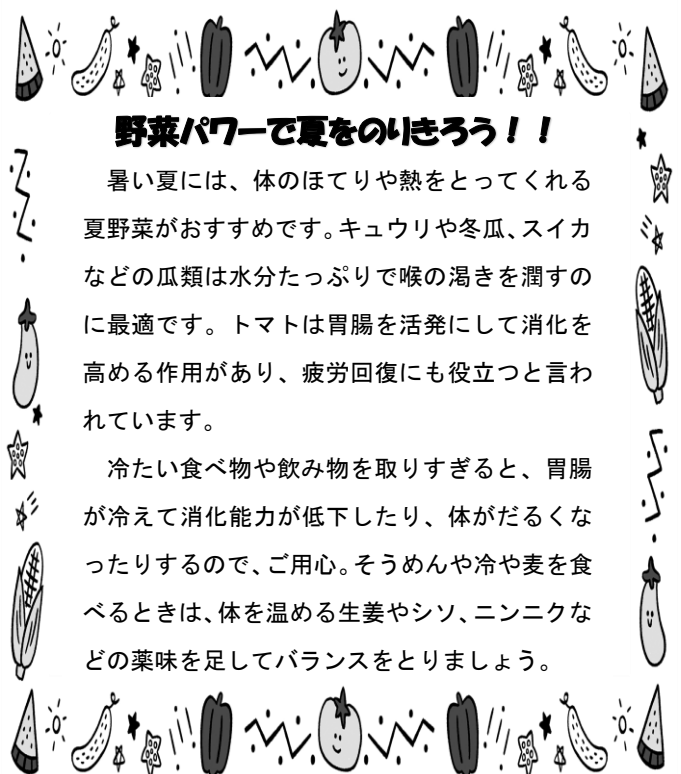 野菜パワーで夏をのりきろう！！
暑い夏には、体のほてりや熱をとってくれる
夏野菜がおすすめです。キュウリや冬瓜、スイカ
などの瓜類は水分たっぷりで喉の渇きを潤すの
に最適です。トマトは胃腸を活発にして消化を
高める作用があり、疲労回復にも役立つと言わ
れています。
冷たい食べ物や飲み物を取りすぎると、胃腸
が冷えて消化能力が低下したり、体がだるくな
ったりするので、ご用心。そうめんや冷や麦を食
べるときは、体を温める生姜やシソ、ニンニクな
どの薬味を足してバランスをとりましょう。